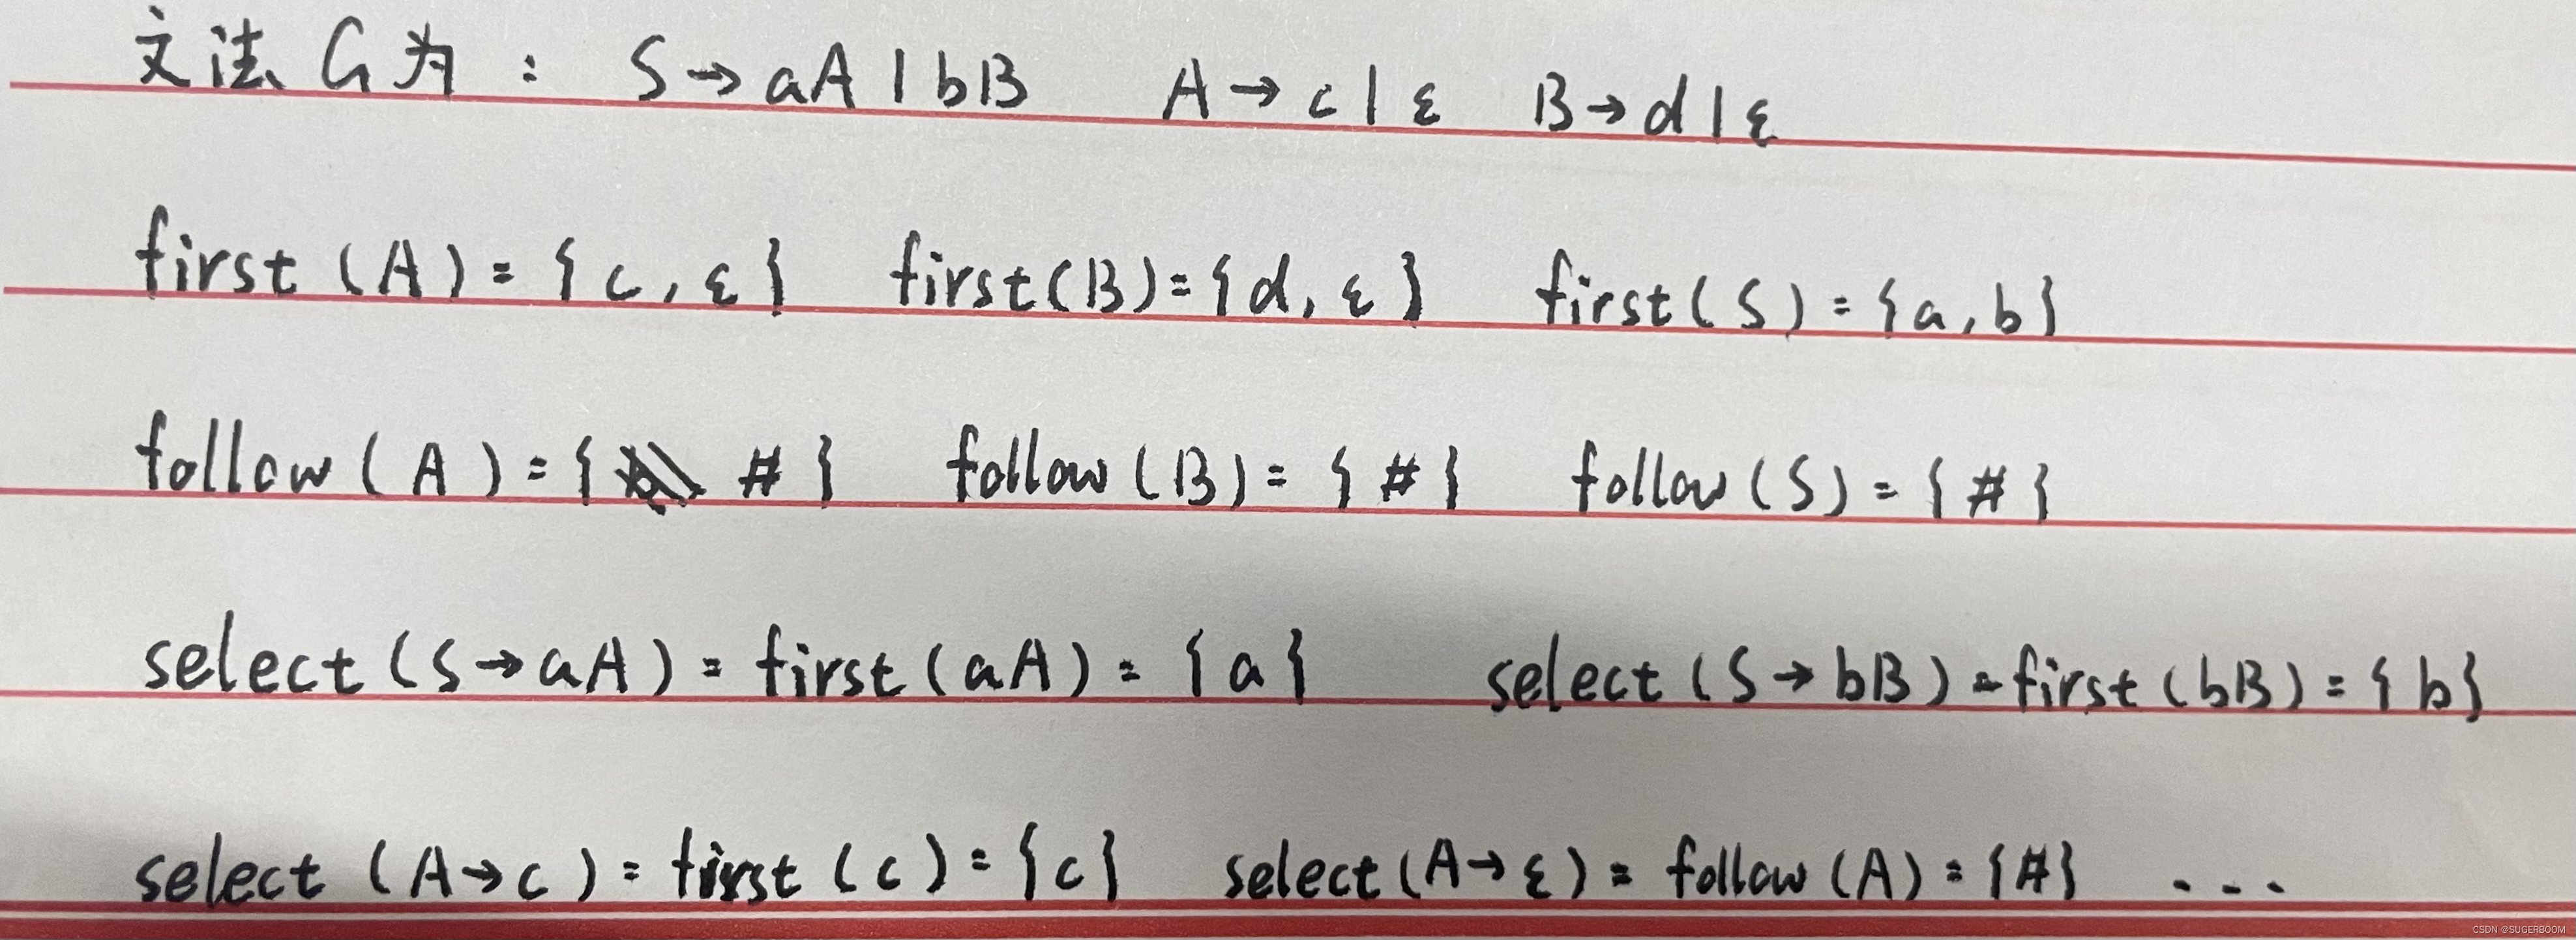 文法G为： S→aA|bB A→c|ε B→d|ε
first(A)={c,ε} first(B)={d,ε} first(S)={a,b}
follow(A)={ #} follow(B)={#} follow(S)={#}
select(S→aA)=first(aA)={a} select(S→bB)=first(bB)={b}
select(A→c)=first(c)={c} select(A→ε)=follow(A)={#} ...
CSDN @SUGERBOOM